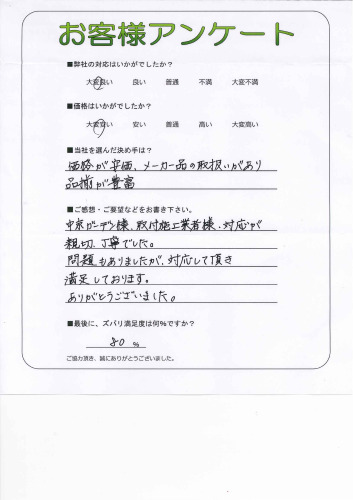 お客様アンケート
■弊社の対応はいかがでしたか？
大変良い 良い 普通 不満 大変不満
■価格はいかがでしたか？
大変安い 安い 普通 高い 大変高い
■当社を選んだ決め手は？
価格が安価、メーカー品の取扱いがあり
品揃が豊富
■ご感想・ご要望などをお書き下さい。
東京ガーデン様、取付施工業者様、対応が
親切、丁寧でした。
問題もありましたが、対応して頂き
満足しております。
ありがとうございました。
■最後に、ズバリ満足度は何%ですか？
80 %
ご協力頂き、誠にありがとうございました。